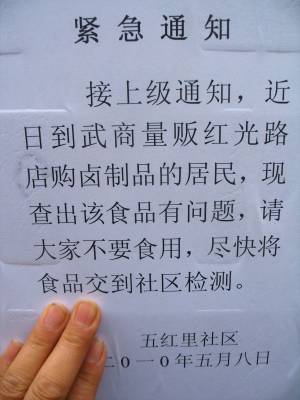 紧急通知
接上级通知，近
日到武商量贩红光路
店购卤制品的居民，现
查出该食品有问题，请
大家不要食用，尽快将
食品交到社区检测。
五红里社区
二0一0年五月八日